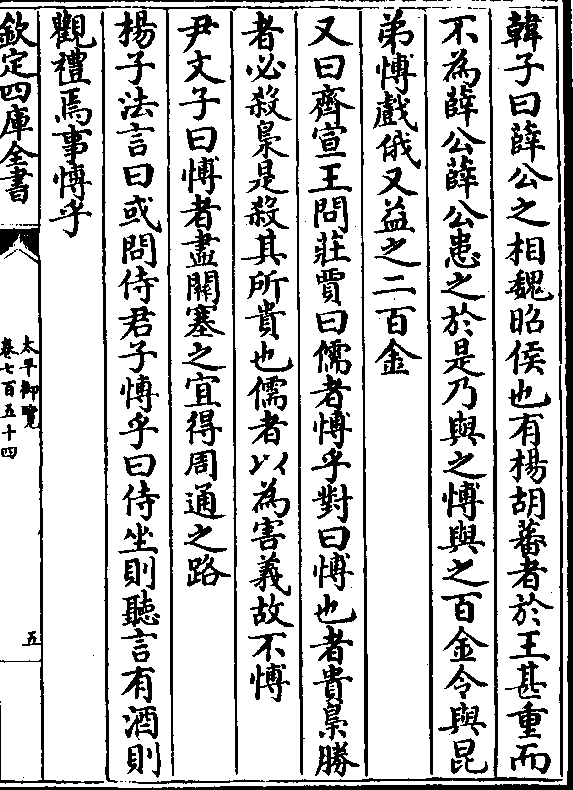 韓子曰薛公之相魏昭侯也有楊胡蕃者於王甚重而
不為薛公薛公患之於是乃與之愽與之百金令與昆
弟愽戲俄又益之二百金
又曰齊宣王問莊賈曰儒者愽乎對曰愽也者貴梟勝
者必殺梟是殺其所貴也儒者以為害義故不愽
尹文子曰愽者盡關塞之宜得周通之路
揚子法言曰或問侍君子愽乎曰侍坐則聽言有酒則
觀禮焉事愽乎
欽定四庫全書
太平御覽
卷七百五十四
五